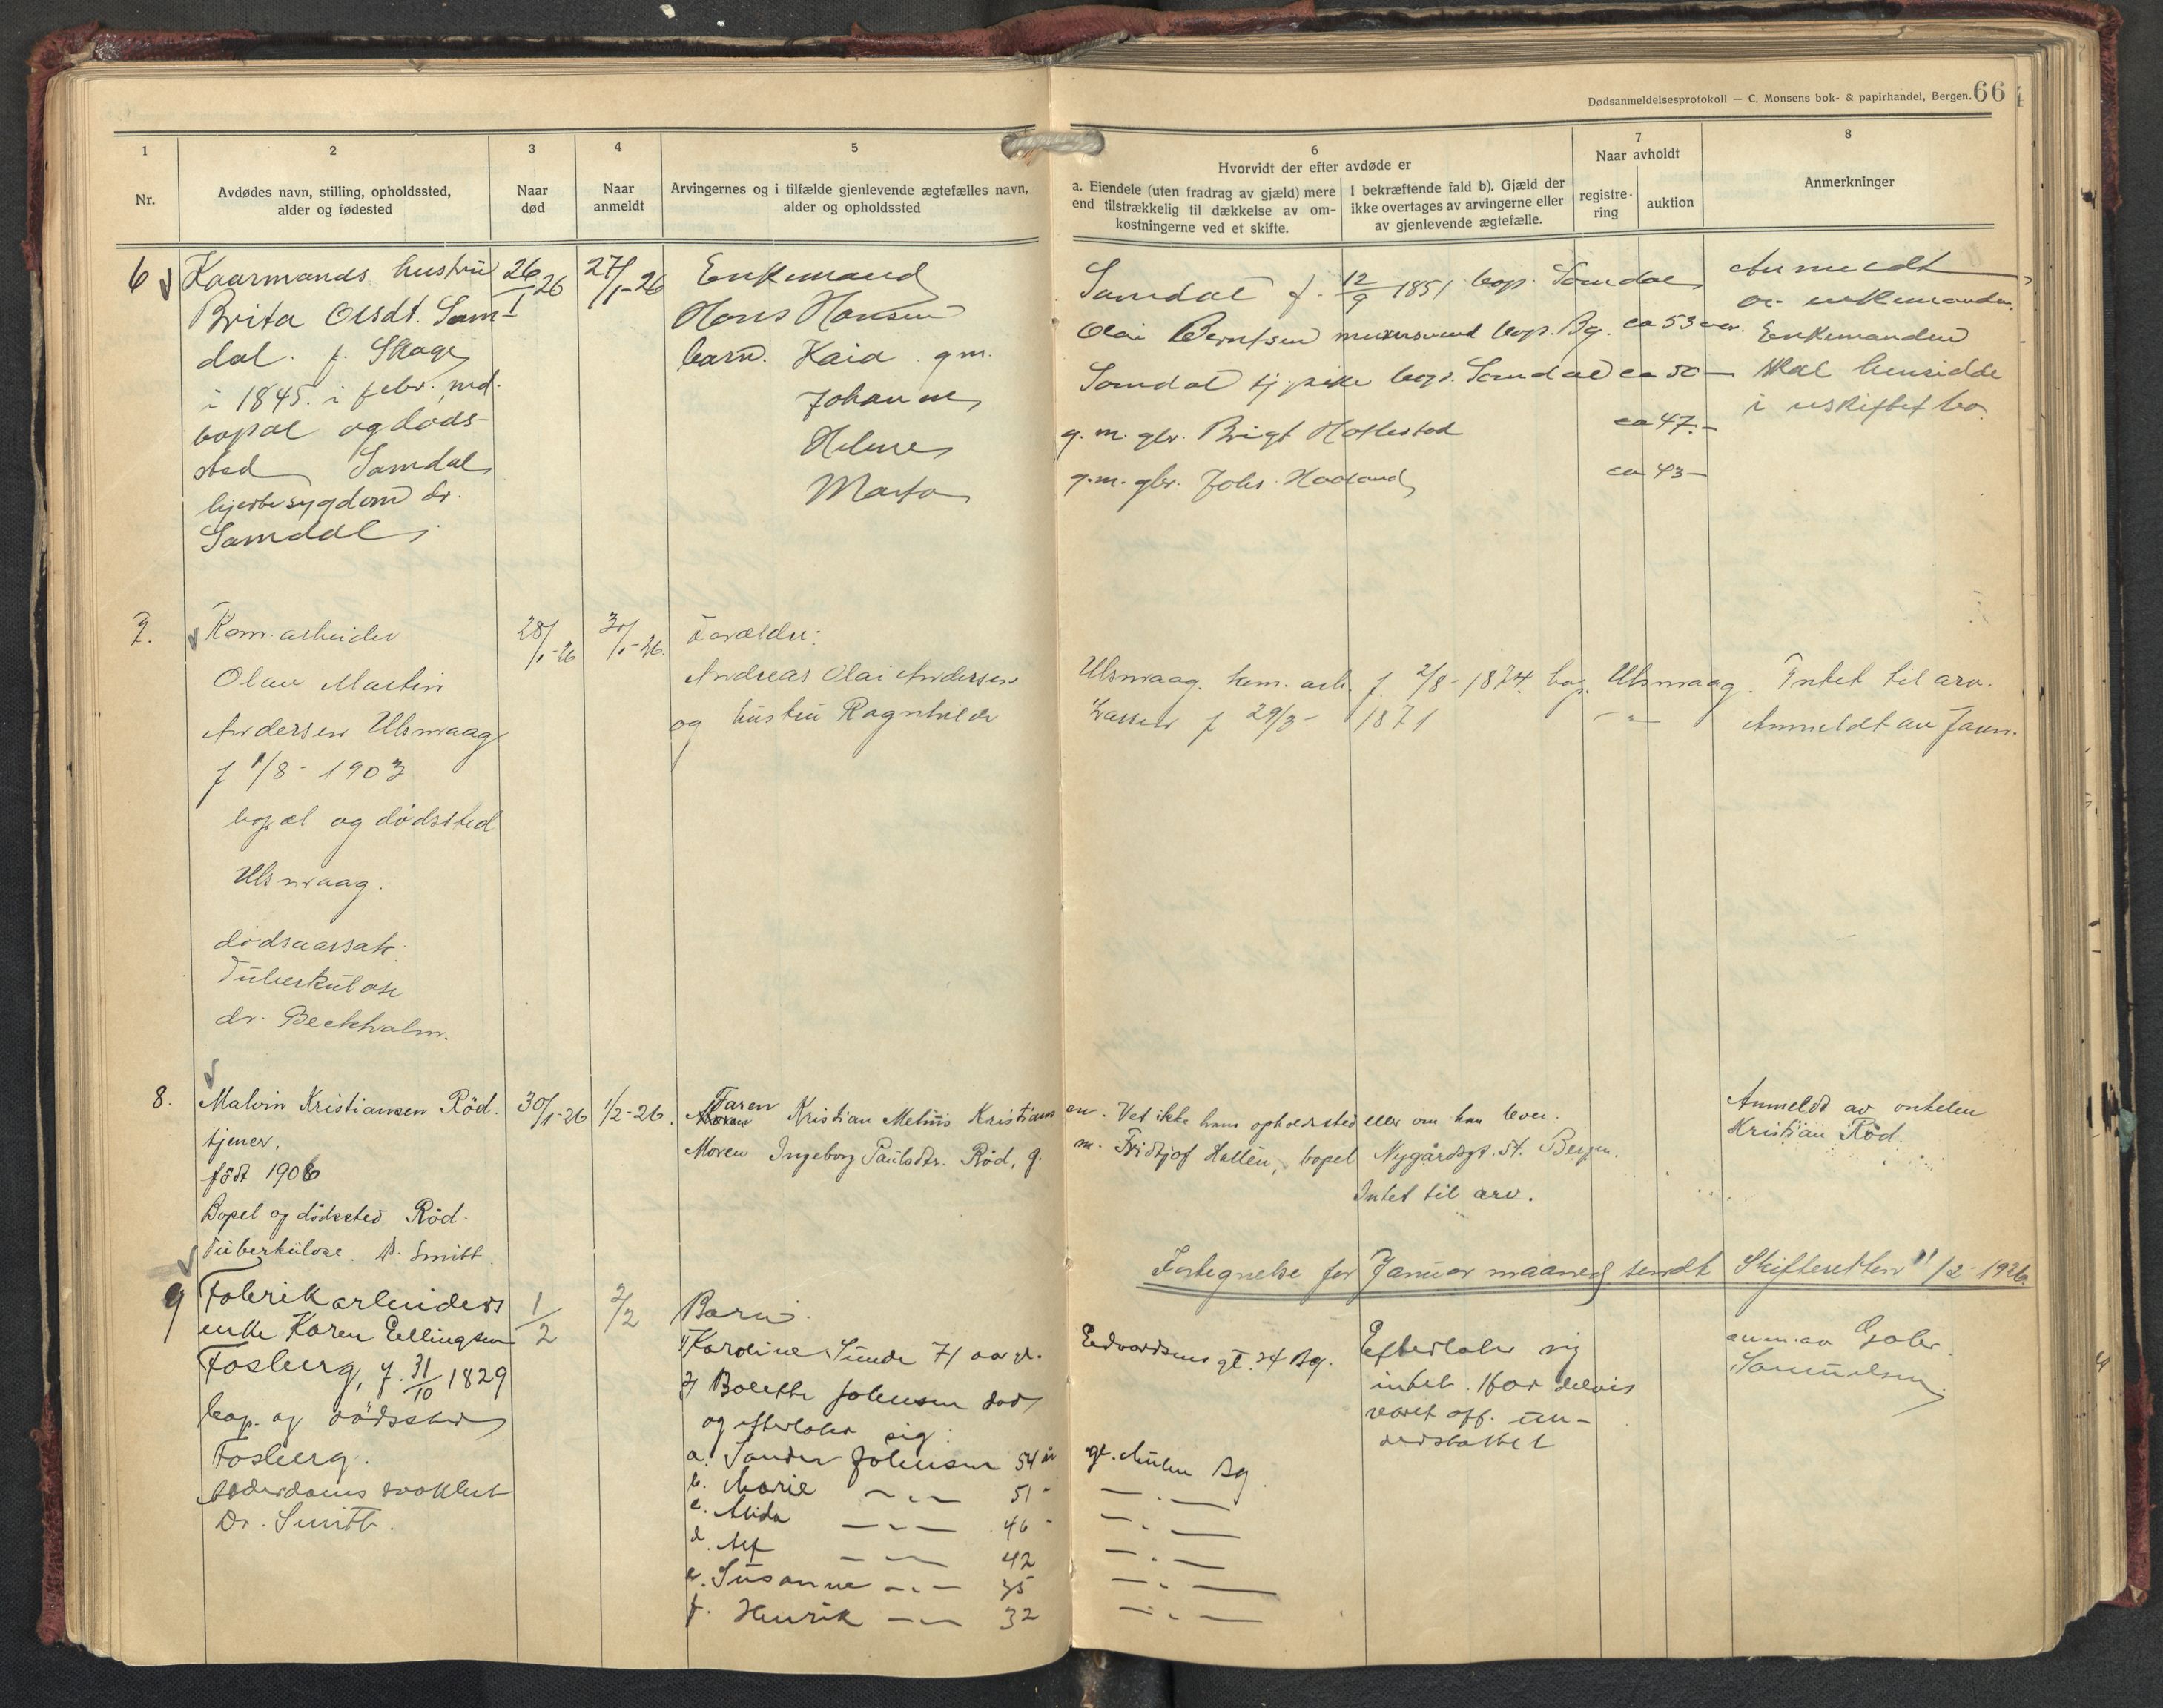 Dødsanmeldelsesprotokoll — C. Monsens bok- & papirhandel, Bergen. 66
1 2 3 4 5 6 7 8
Nr.
Avdødes navn, stilling, opholdssted,
alder og fødested
Naar
død
Naar
anmeldt
Arvingernes og i tilfælde gjenlevende ægtefælles navn,
alder og opholdssted
Hvorvidt der efter avdøde er
a. Eiendele (uten fradrag av gjæld) mere
end tilstrækkelig til dækkelse av om-
kostningerne ved et skifte.
I bekræftende fald b). Gjæld der
ikke overtages av arvingerne eller
av gjenlevende ægtefælle.
Naar avholdt
registre-
ring
auktion
Anmerkninger
6
Kaarmands hustru
Brita Olsdt. Sam-
dal. f. Skage
i 1845. i febr. md.
bopæl og døds-
sted Samdal
hjertesygdom dr.
Samdal
26/1 26
27/1-26
Enkemand
Hans Hansen Samdal f. 12/9 1851 bop. Samdal
barn. Kaia g.m. Olai Berntsen murersvend bop. Bg. ca 53 aar.
Johanne Samdal tj.pike bop. Samdal ca 50 —
Helene g.m. gbr. Brigt ca 47.—
Marta g.m. gbr. Johs. Haaland ca 43 —
Anmeldt
av enkemanden.
Enkemanden
skal hensidde
i uskiftet bo.
7.
Kom.arbeider
Olav Martin
Andersen Ulsmaag
f 1/8-1903
bopæl og dødssted
Ulsmaag.
dødsaarsak:
Tuberkulose
dr. Beckholm.
28/1-26
30/1-26.
Forældre:
Andreas Olai Andersen Ulsmaag. kom. arb. f. 2/8-1874. bop. Ulsmaag.
og hustru Ragnhilde Larsen f 29/3- 1871 - " -
Intet til arv.
Anmeldt av faren.
8.
Malvin Kristiansen Röd.
tjener.
født 1906
Bopel og dödssted Röd.
Tuberkulose. Dr. Smitt.
30/1-26
1/2-26.
Faren Kristian Melius Kristiansen. Vet ikke hans opholdssted eller om han lever.
Moren Ingeborg Paulsdtr. Röd, g. m. Fridtjof Hallén, bopel Nygårdsgt. 54. Bergen.
Intet til arv.
Anmeldt av onkelen
Kristian Röd.
Fortegnelse for Januar maaned sendt Skifteretten 11/2-1926.
9
Fabrikarbeiders
enke Karen Ellingsen
Fosberg, f. 31/10 1829
bop. og dödssted
Fosberg.
Alderdoms svakhet
Dr. Smith.
1/2
2/2
Barn:
1) Karoline Sunde 71 aar. Edvardsens gt. 24 Bg.
2) Bolette Johnsen död
og efterlater sig:
a. Sander Johnsen 54 år gt. Mulen Bg.
b. Marie —"— 51 - —"—
c. Alida —"— 46 - —"—
d. Alf —"— 42 —"—
e. Susanne —"— 35 —"—
f. Henrik —"— 32 —"—
Efterlater sig
intet. Har delvis
været off. un-
derstøttet
anm. av Gabr.
Samuelsen.